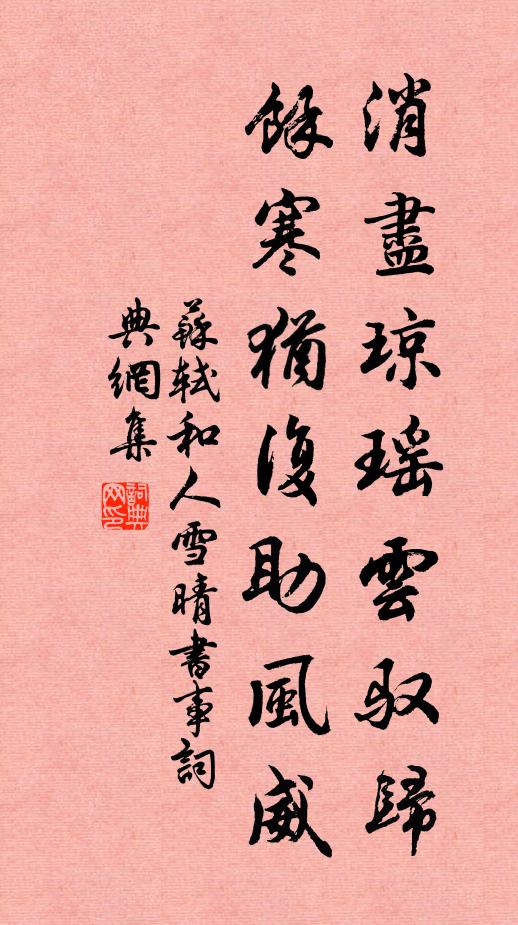 消盡琼瑶雲驭歸
餘寒猶復助風威
蘇轼和人雪晴書事詞
典網集
詞典网印